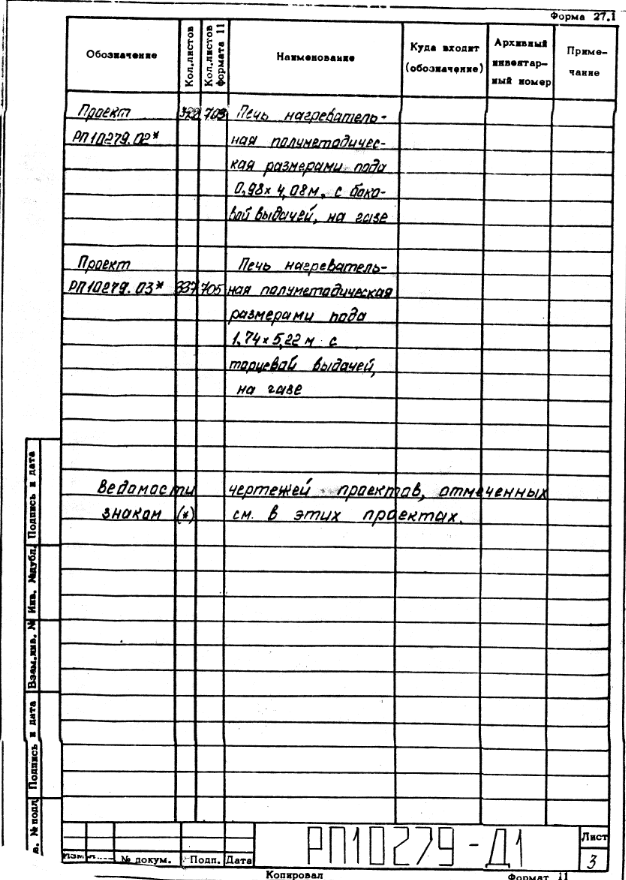 Форма 27.1
Обозначение
Кол.листов
Кол.листов формата 11
Наименование
Куда входит (обозначение)
Архивный инвентарный номер
Примечание
Проект Печь нагреватель-
РП10279.02* ная полуметодичес-
кая размерами пода
0,98 × 4,08 м, с боко-
вой выдачей, на газе
Проект Печь нагреватель-
РП10279.03* 337 705 ная полуметодическая
размерами пода
1,74 × 5,22 м с
торцевой выдачей,
на газе
Ведомости чертежей проектов, отмеченных
знаком (*) см. в этих проектах.
Подпись и дата
Инв. №дубл.
Взам.инв. №
Подпись и дата
№ подл
№ докум. Подп. Дата
РП10279-Д1
Лист
3
Копировал
Формат 11